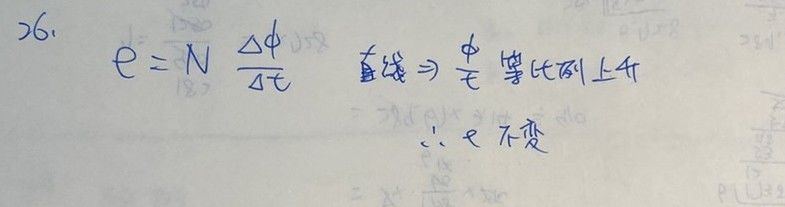 26.
e = N Δφ/Δt 直线 ⇒ φ/t 等比例上升
∴ e 不变